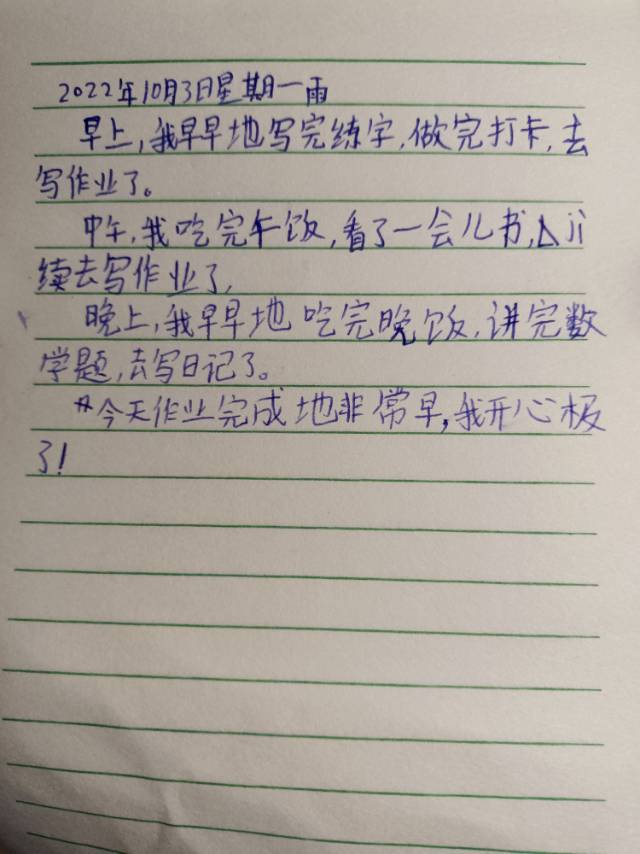 2022年10月3日星期一雨
早上,我早早地写完练字,做完打卡,去
写作业了。
中午,我吃完午饭,看了一会儿书,△jì
续去写作业了,
晚上,我早早地吃完晚饭,讲完数
学题,去写日记了。
今天作业完成地非常早,我开心极
了!